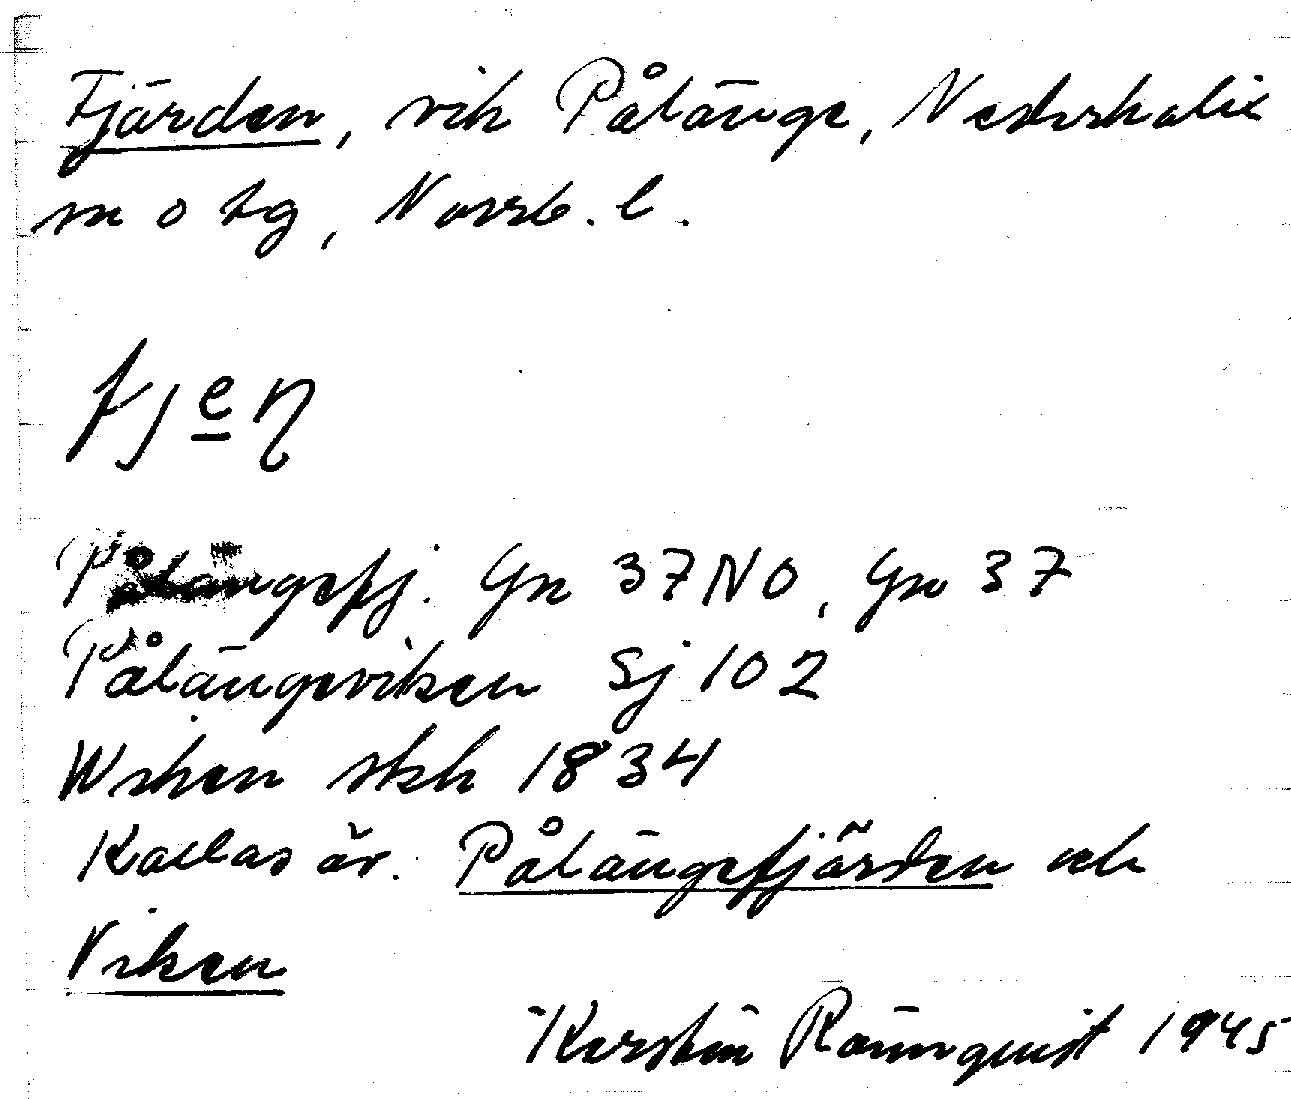 Fjärden, vik Pålänge, Nederkalix
m o tg, Norrb. l.
fjeɳ
Pålängefj. Gn 37NO, Gn 37
Pålängeviken Sj 102
Wiken skh 1834
Kallas äv. Pålängefjärden och
Viken
Kerstin Rönnquist 1945